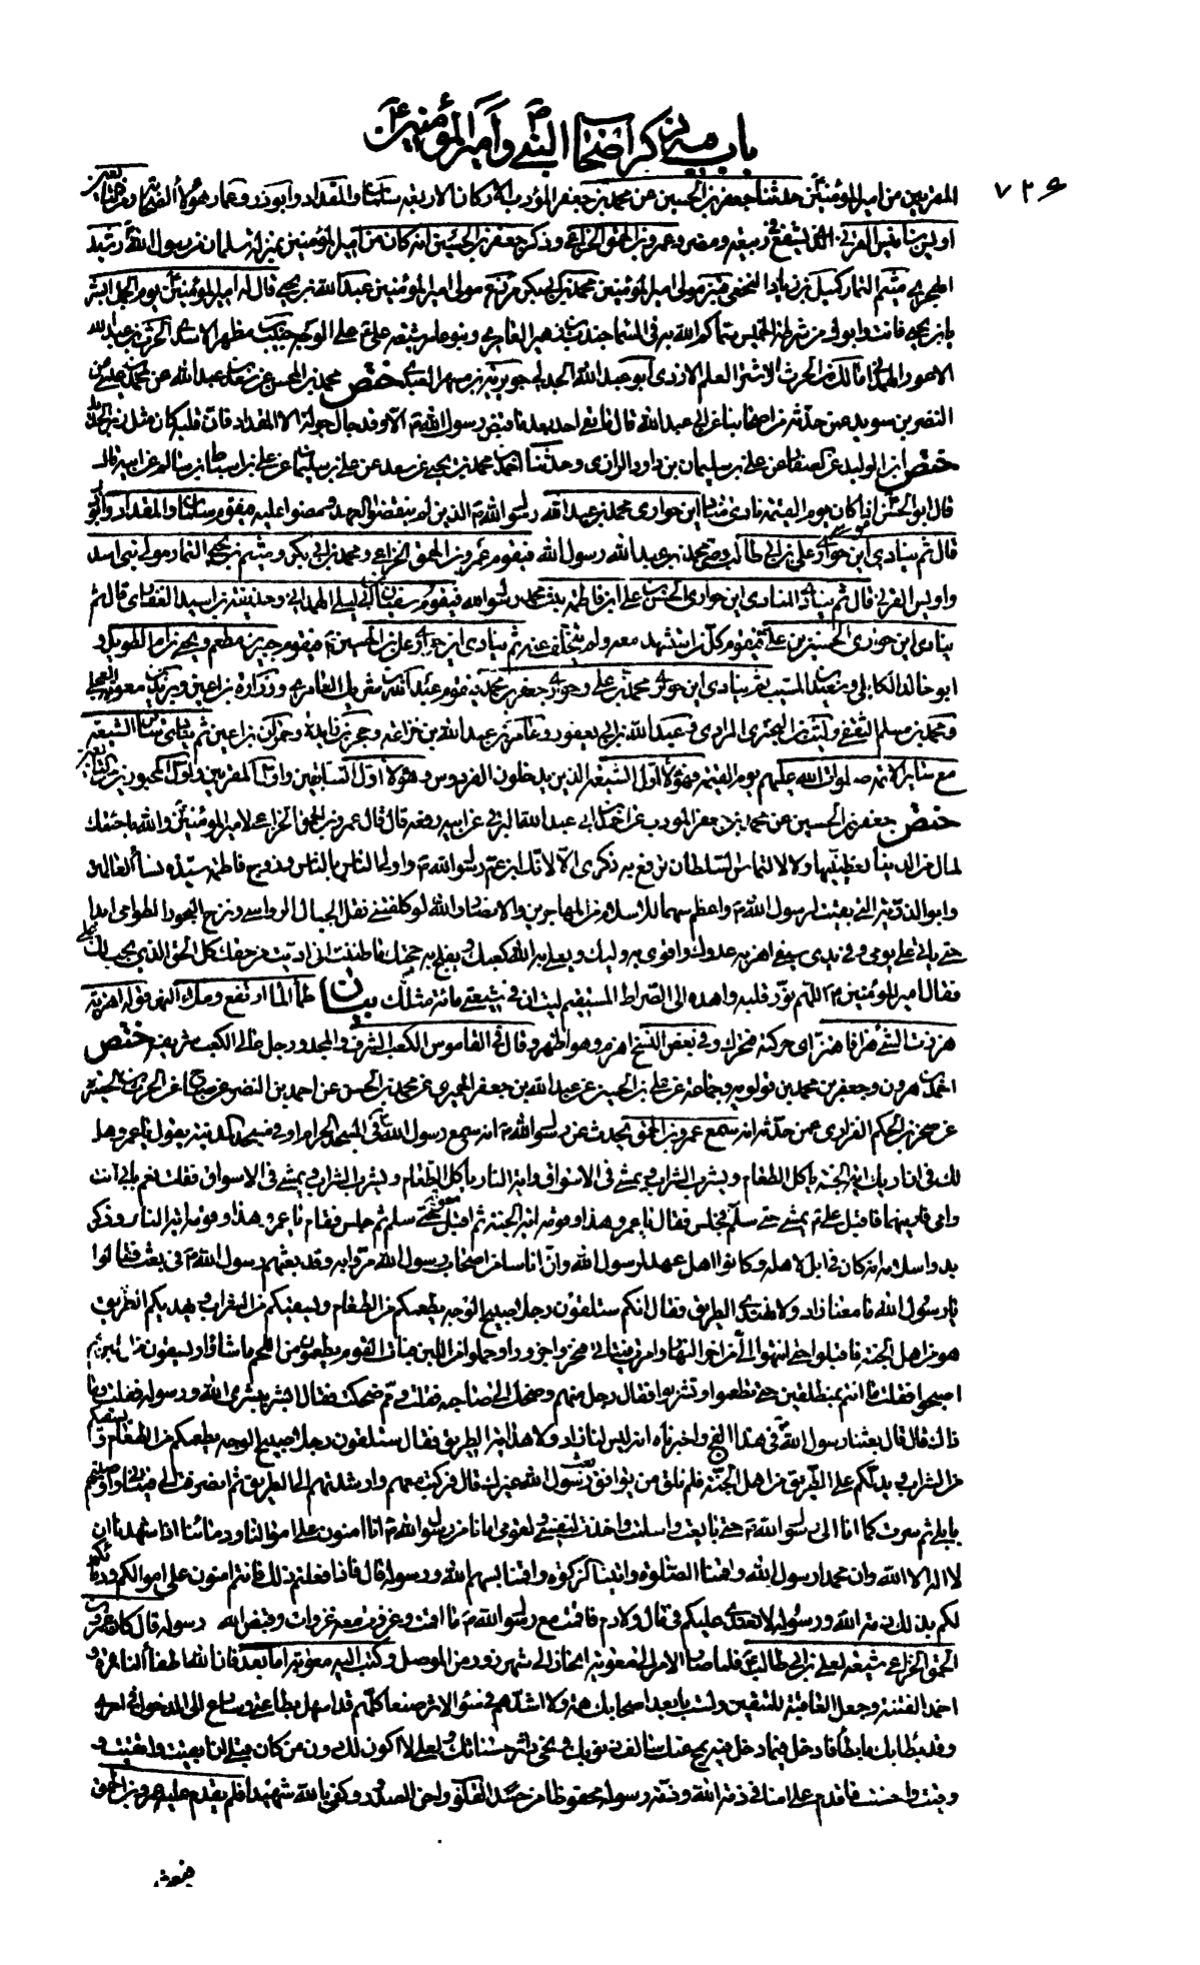 باب فيه ذكر أصحاب النبي وأمير المؤمنين
٧٢٦
المقربين من أمير المؤمنين حدثنا جعفر بن الحسين عن محمد بن جعفر المؤدب الاركان الاربعة سلمان والمقداد وابوذر وعمار هؤلاء الصحابة ومن التابعين
اويس بن انيس القرني الذي يشفع في ربيعة ومضر وعمرو بن الحمق الخزاعي وذكر جعفر بن الحسين انه كان من امير المؤمنين بمنزلة سلمان من رسول الله رشيد
الهجري ميثم التمار كميل بن زياد النخعي قنبر مولى امير المؤمنين محمد بن ابي بكر مزرع مولى امير المؤمنين عبد الله بن يحيى قال له امير المؤمنين يوم الجمل ابشر
يا بن يحيى فانت وابوك من شرطة الخميس سماكم الله به في السماء جندب بن زهير العامري وبنو عامر شيعة علي على الوجه حبيب بن مظهر الاسدي الحرث بن عبد الله
الاعور الهمداني مالك بن الحرث الاشتر العلم الازدي ابو عبد الله الجدلي جويرية بن مسهر العبدي ختص محمد بن الحسن عن سعد بن عبد الله عن محمد بن عيسى عن
النضر بن سويد عمن حدثه من اصحابنا عن ابي عبد الله قال ما بقي احد بعد ما قبض رسول الله الا وقد جال جولة الا المقداد فان قلبه كان مثل زبر الحديد
ختص ابن الوليد عن الصفار عن علي بن سليمان بن داود الرازي وحدثنا احمد بن محمد بن يحيى عن سعد عن علي بن سليمان عن علي بن اسباط عن ابيه قال
قال ابو الحسن اذا كان يوم القيمة نادى مناد اين حواري محمد بن عبد الله رسول الله الذين لم ينقضوا العهد ومضوا عليه فيقوم سلمان والمقداد وابوذر
قال ثم ينادي اين حواري علي بن ابي طالب وصي محمد بن عبد الله رسول الله فيقوم عمرو بن الحمق الخزاعي ومحمد بن ابي بكر وميثم بن يحيى التمار مولى بني اسد
واويس القرني قال ثم ينادي المنادي اين حواري الحسن بن علي ابن فاطمة بنت محمد رسول الله فيقوم سفيان بن ابي ليلى الهمداني وحذيفة بن اسيد الغفاري قال ثم
ينادي اين حواري الحسين بن علي فيقوم كل من استشهد معه ولم يتخلف عنه ثم ينادي اين حواري علي بن الحسين فيقوم جبير بن مطعم ويحيى بن ام الطويل و
ابو خالد الكابلي وسعيد بن المسيب ثم ينادي اين حواري محمد بن علي وحواري جعفر بن محمد فيقوم عبد الله بن شريك العامري وزرارة بن اعين وبريد بن معوية العجلي
ومحمد بن مسلم الثقفي وليث بن البختري المرادي وعبد الله بن ابي يعفور وعامر بن عبد الله بن خزاعة وحجر بن زايدة وحمران بن اعين ثم ينادي ساير الشيعة
مع ساير الائمة صلوات الله عليهم يوم القيمة فهؤلاء اول الشيعة الذين يدخلون الفردوس وهؤلاء اول السابقين واول المقربين واول المحبورين من التابعين
ختص جعفر بن الحسين عن محمد بن جعفر المؤدب عن احمد بن ابي عبد الله البرقي عن ابيه رفعه قال قال عمرو بن الحمق الخزاعي لامير المؤمنين والله ما جئتك
لمال من الدنيا تعطينيها ولا لالتماس السلطان ترفع به ذكرى الا لانك ابن عم رسول الله واولى الناس بالناس وزوج فاطمة سيدة نساء العالمين
وابو الذرية التي بقيت لرسول الله واعظم سهما للاسلام من المهاجرين والانصار والله لو كلفتني نقل الجبال الرواسي ونزح البحور الطوامي ابدا
حتى ياتي علي يومي وفي يدي سيفي اهز به عدوك واقوي به وليك ويعلي به الله كعبك ويفلج به حجتك ما ظننت اني اديت من حقك كل الحق الذي يجب لك علي
فقال امير المؤمنين اللهم نور قلبه واهده الى الصراط المستقيم ليت ان في شيعتي مائة مثلك بيان طما الماء ارتفع وملاء النهر وقوله اهز به
هززت الشيء هزا فاهتز اي حركته فتحرك وفي بعض النسخ اهزم وهو اظهر وقال في القاموس الكعب الشرف والمجد ورجل عالي الكعب شريف ختص
احمد بن هرون وجعفر بن محمد بن قولويه وجماعة عن علي بن الحسين عن عبد الله بن جعفر الحميري عن محمد بن الحسن عن احمد بن النضر عن صباح عن الحرث بن الحصيرة
عن صخر بن الحكم الفزاري عمن حدثه انه سمع عمرو بن الحمق يحدث عن رسول الله انه سمع رسول الله في المسجد الحرام او في مسجد المدينة يقول يا عمرو هل
لك في ان اريك اية الجنة ياكل الطعام ويشرب الشراب ويمشي في الاسواق واية النار ياكل الطعام ويشرب الشراب ويمشي في الاسواق فقلت نعم بابي انت
وامي فارنيهما فاقبل علي يمشي حتى سلم فجلس فقال يا عمرو هذا وقومه اية الجنة ثم اقبل معوية حتى سلم ثم جلس فقام يا عمرو هذا وقومه اية النار وذكر
بدو اسلامه انه كان في ابل لاهله وكانوا اهل عهد لرسول الله وان اناسا من اصحاب رسول الله مروا به وقد بعثهم رسول الله في بعث فقالوا
يا رسول الله ما معنا زاد ولا نهتدي الطريق فقال انكم ستلقون رجلا صبيح الوجه يطعمكم من الطعام ويسقيكم من الشراب ويهديكم الطريق
هو من اهل الجنة فاقبلوا حتى انتهوا الي من اخر النهار وامرت فتياني فنحروا جزورا وحلبوا من اللبن فبات القوم يطعمون من اللحم ما شاؤا ويسقون من اللبن ثم
اصبحوا فقلت ما انتم بمنطلقين حتى تطعموا وتشربوا فقال رجل منهم وضحك الى صاحبه فقلت ومم ضحكت فقال ابشر ببشرى الله ورسوله فقلت وما
ذاك قال قال بعثنا رسول الله في هذا الفج واخبرناه انه ليس لنا زاد ولا هداية الطريق فقال ستلقون رجلا صبيح الوجه يطعمكم من الطعام ويسقيكم
من الشراب ويدلكم على الطريق من اهل الجنة فلم نلق من يوافق نعت رسول الله غيرك قال فركبت معهم وارشدتهم الى الطريق ثم انصرفت الى فتياني واوصيتهم
بابلي ثم سرت كما انا الى رسول الله حتى بايعت واسلمت واخذت لنفسي ولقومي امانا من رسول الله انا امنون على اموالنا ودمائنا اذا شهدنا ان
لا اله الا الله وان محمدا رسول الله واقمنا الصلوة واتينا الزكوة واقمنا بسهم الله ورسوله قال فاذا فعلتم ذلك فانتم امنون على اموالكم ودمائكم
لكم بذلك ذمة الله ورسوله لا نعتدي عليكم في مال ولا دم فاقمت مع رسول الله ما اقمت وغزوت معه غزوات وقبض الله رسوله قال كان عمرو بن
الحمق الخزاعي شيعة لعلي بن ابي طالب فلما صار الامر الى معوية انحاز الى شهرزور من الموصل وكتب اليه معوية اما بعد فان الله اطفأ النائرة و
اخمد الفتنة وجعل العاقبة للمتقين ولست بابعد اصحابك همة ولا اشدهم في سوء الاثر صنعا كلهم قد اسهل بطاعتي وسارع الى الدخول في امري
وقد بطأ بك ما بطأ فادخل فيما دخل فيه الناس يمح عنك سالف ذنوبك ومحي داثر حسناتك ولعلي لا اكون لك دون من كان قبلي ان ابقيت واتقيت و
وقيت واحسنت فاقدم علي امنا في ذمة الله وذمة رسوله محفوظا من حسد القلوب واحن الصدور وكفى بالله شهيدا فلم يقدم عليه عمرو بن الحمق
فبعث